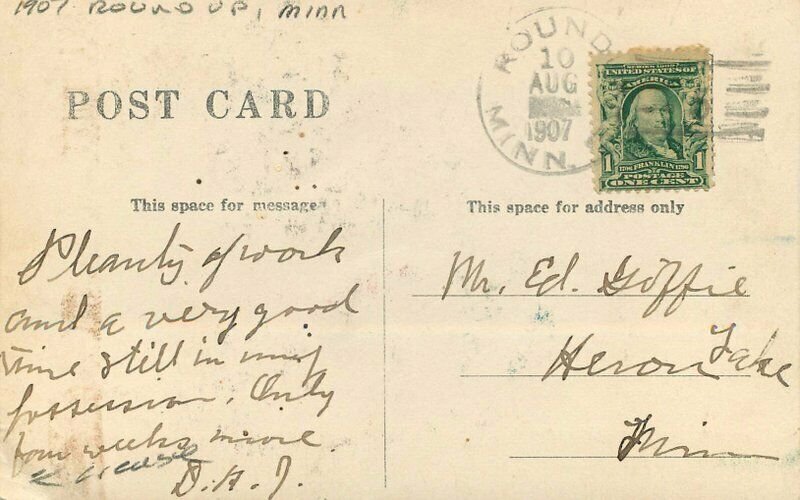 1907 ROUND UP, MINN
POST CARD
ROUND
10
AUG
1907
MINN.
SERIES 1902
UNITED STATES OF
AMERICA
1 1706 FRANKLIN 1790 1
POSTAGE
ONE CENT
This space for message
This space for address only
Pleanty of work
and a very good
time still in my
possession. Only
four weeks more.
< crease
D.A.J.
Mr. Ed. Goffie
Heron Lake
Minn